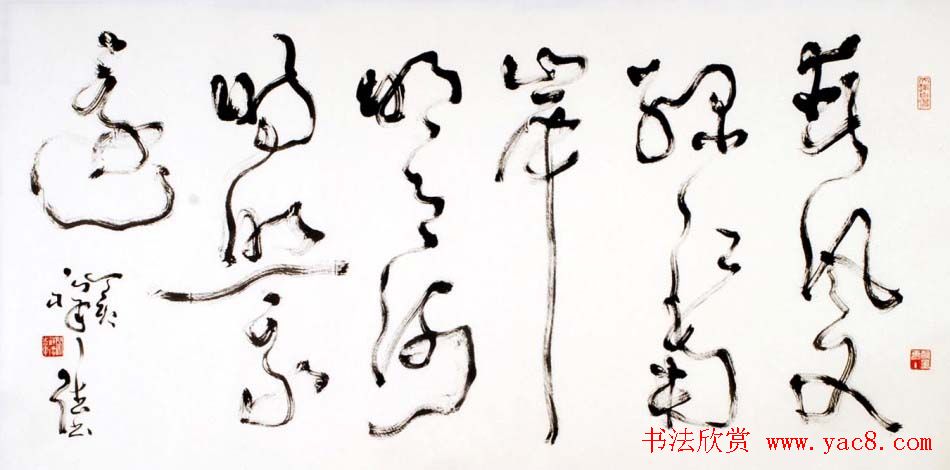 春风又
绿江南
岸
明月何
时照我
还
书法欣赏 www.yac8.com